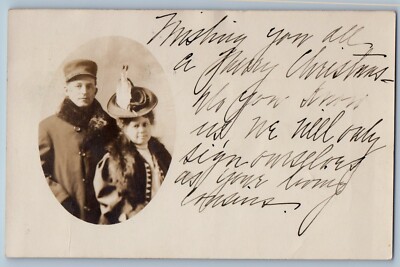 Wishing you all
a Merry Christmas -
As you know
us we will only
sign ourselves
as your loving
cousins.